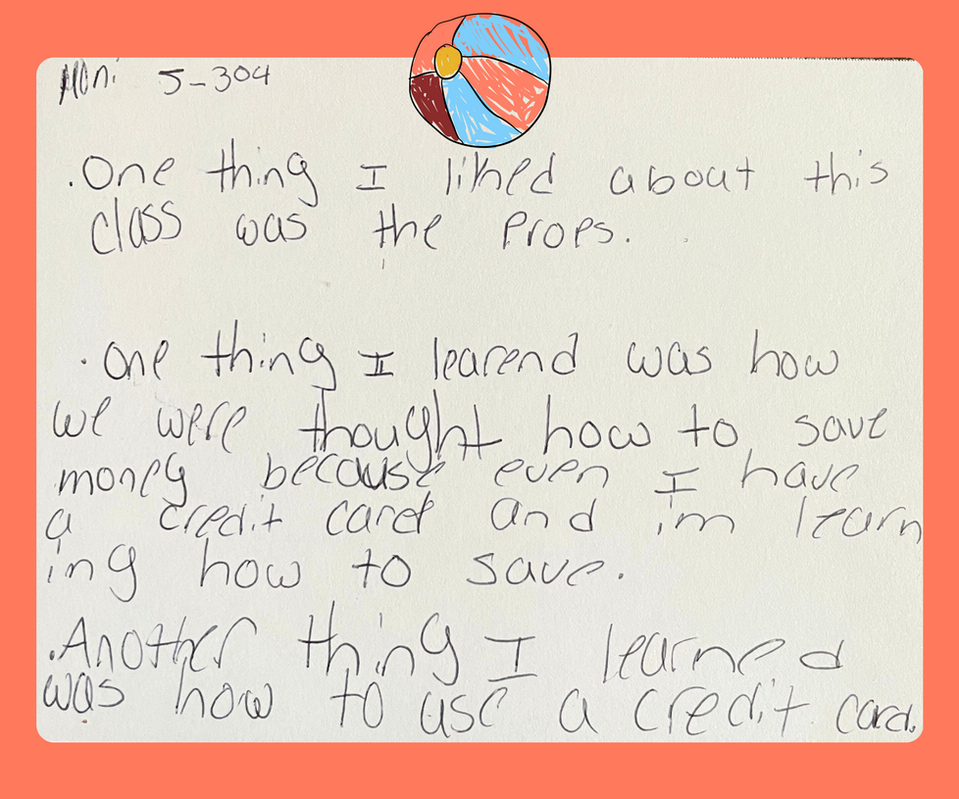 Moni 5-304
. One thing I liked about this
class was the props.
. one thing I learend was how
we were thought how to save
money because even I have
a credit card and i'm learn
ing how to save.
. Another thing I learned
was how to use a credit card.